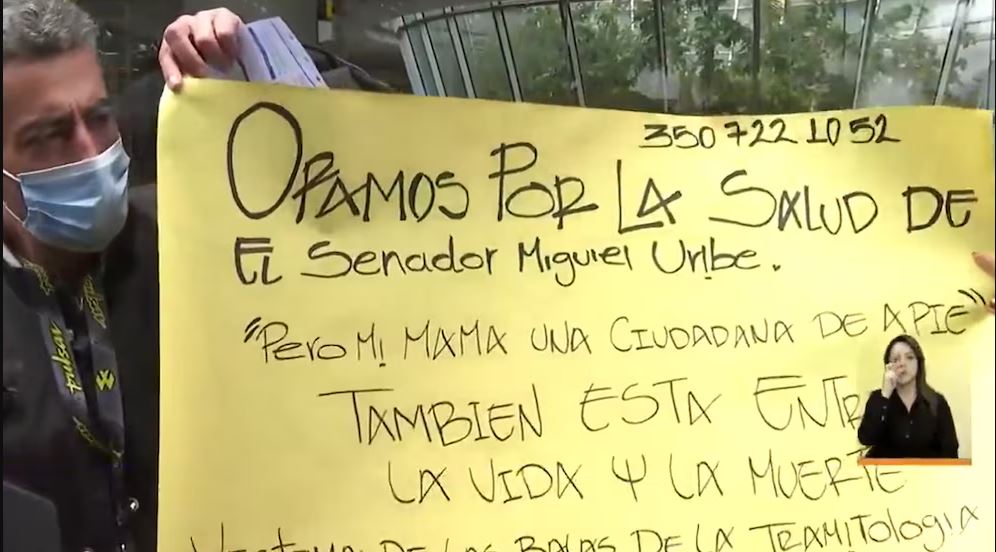 350 722 10 52
ORAMOS POR LA SALUD DE
El Senador Miguel Uribe.
"Pero Mi MAMA UNA CIUDADANA DE APIE"
TAMBIEN ESTA ENTR
LA VIDA Y LA MUERTE
DE LAS BALAS DE LA TRAMITOLOGIA
Pulsar